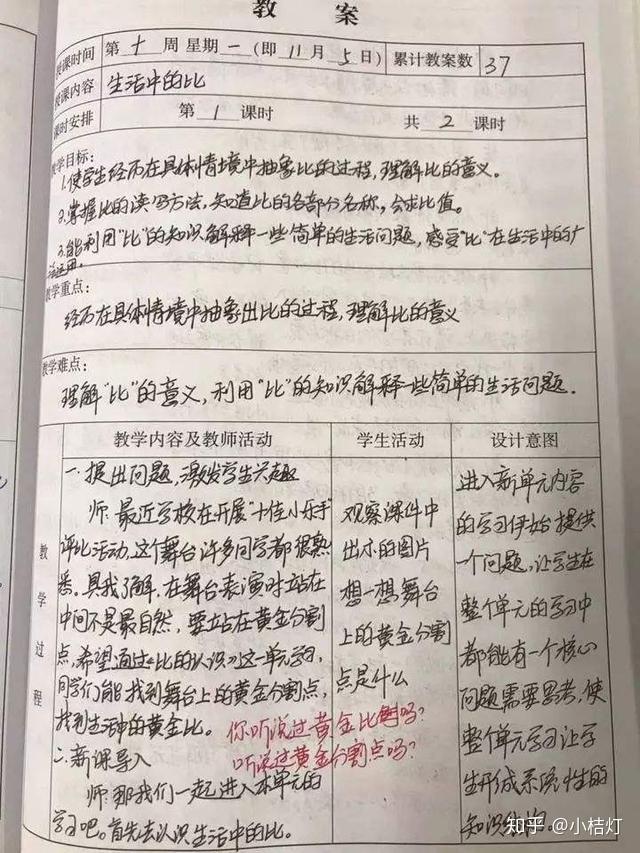 教 案
授课时间 第 十 周 星期 一 (即 11 月 5 日) 累计教案数 37
授课内容 生活中的比
课时安排 第 1 课时 共 2 课时
教学目标:
1.使学生经历在具体情境中抽象比的过程,理解比的意义。
2.掌握比的读写方法,知道比的各部分名称,会求比值。
3.能利用“比”的知识解释一些简单的生活问题,感受“比”在生活中的广
泛运用。
教学重点:
经历在具体情境中抽象出比的过程,理解比的意义
教学难点:
理解“比”的意义,利用“比”的知识解释一些简单的生活问题.
教学过程
教学内容及教师活动
一.提出问题,激发学生兴趣
师:最近学校在开展“十佳小乐手”
评比活动,这个舞台许多同学都很熟
悉。具我了解,在舞台表演时站在
中间不是最自然,要站在黄金分割
点,希望通过《比的认识》这一单元学习,
同学们能找到舞台上的黄金分割点,
找到生活中的黄金比。
你听说过黄金比吗?
听说过黄金分割点吗?
二.新课导入
师:那我们一起进入本单元的
学习吧。首先去认识生活中的比。
学生活动
观察课件中
出示的图片
想一想舞台
上的黄金分割
点是什么
设计意图
进入新单元内容
的学习伊始提供
一个问题,让学生在
整个单元的学习中
都能有一个核心
问题需要思考,使
整个单元学习让学
生形成系统性的
知识
知乎 @小桔灯